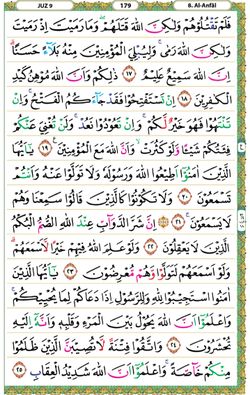 JUZ 9 179 8. Al-Anfāl
فَلَمْ تَقْتُلُوْهُمْ وَلٰكِنَّ اللّٰهَ قَتَلَهُمْۖ وَمَا رَمَيْتَ اِذْ رَمَيْتَ
وَلٰكِنَّ اللّٰهَ رَمٰىۚ وَلِيُبْلِيَ الْمُؤْمِنِيْنَ مِنْهُ بَلَاۤءً حَسَنًاۗ
اِنَّ اللّٰهَ سَمِيْعٌ عَلِيْمٌ ١٧ ذٰلِكُمْ وَاَنَّ اللّٰهَ مُوْهِنُ كَيْدِ
الْكٰفِرِيْنَ ١٨ اِنْ تَسْتَفْتِحُوْا فَقَدْ جَاۤءَكُمُ الْفَتْحُۚ وَاِنْ
تَنْتَهُوْا فَهُوَ خَيْرٌ لَّكُمْۚ وَاِنْ تَعُوْدُوْا نَعُدْۚ وَلَنْ تُغْنِيَ عَنْكُمْ
فِئَتُكُمْ شَيْـًٔا وَّلَوْ كَثُرَتْۙ وَاَنَّ اللّٰهَ مَعَ الْمُؤْمِنِيْنَ ١٩ يٰٓاَيُّهَا
الَّذِيْنَ اٰمَنُوْٓا اَطِيْعُوا اللّٰهَ وَرَسُوْلَهٗ وَلَا تَوَلَّوْا عَنْهُ وَاَنْتُمْ
تَسْمَعُوْنَ ٢٠ وَلَا تَكُوْنُوْا كَالَّذِيْنَ قَالُوْا سَمِعْنَا وَهُمْ
لَا يَسْمَعُوْنَ ٢١ اِنَّ شَرَّ الدَّوَاۤبِّ عِنْدَ اللّٰهِ الصُّمُّ الْبُكْمُ
الَّذِيْنَ لَا يَعْقِلُوْنَ ٢٢ وَلَوْ عَلِمَ اللّٰهُ فِيْهِمْ خَيْرًا لَّاَسْمَعَهُمْۗ
وَلَوْ اَسْمَعَهُمْ لَتَوَلَّوْا وَّهُمْ مُّعْرِضُوْنَ ٢٣ يٰٓاَيُّهَا الَّذِيْنَ
اٰمَنُوا اسْتَجِيْبُوْا لِلّٰهِ وَلِلرَّسُوْلِ اِذَا دَعَاكُمْ لِمَا يُحْيِيْكُمْۚ
وَاعْلَمُوْٓا اَنَّ اللّٰهَ يَحُوْلُ بَيْنَ الْمَرْءِ وَقَلْبِهٖ وَاَنَّهٗٓ اِلَيْهِ
تُحْشَرُوْنَ ٢٤ وَاتَّقُوْا فِتْنَةً لَّا تُصِيْبَنَّ الَّذِيْنَ ظَلَمُوْا
مِنْكُمْ خَاۤصَّةًۚ وَاعْلَمُوْٓا اَنَّ اللّٰهَ شَدِيْدُ الْعِقَابِ ٢٥